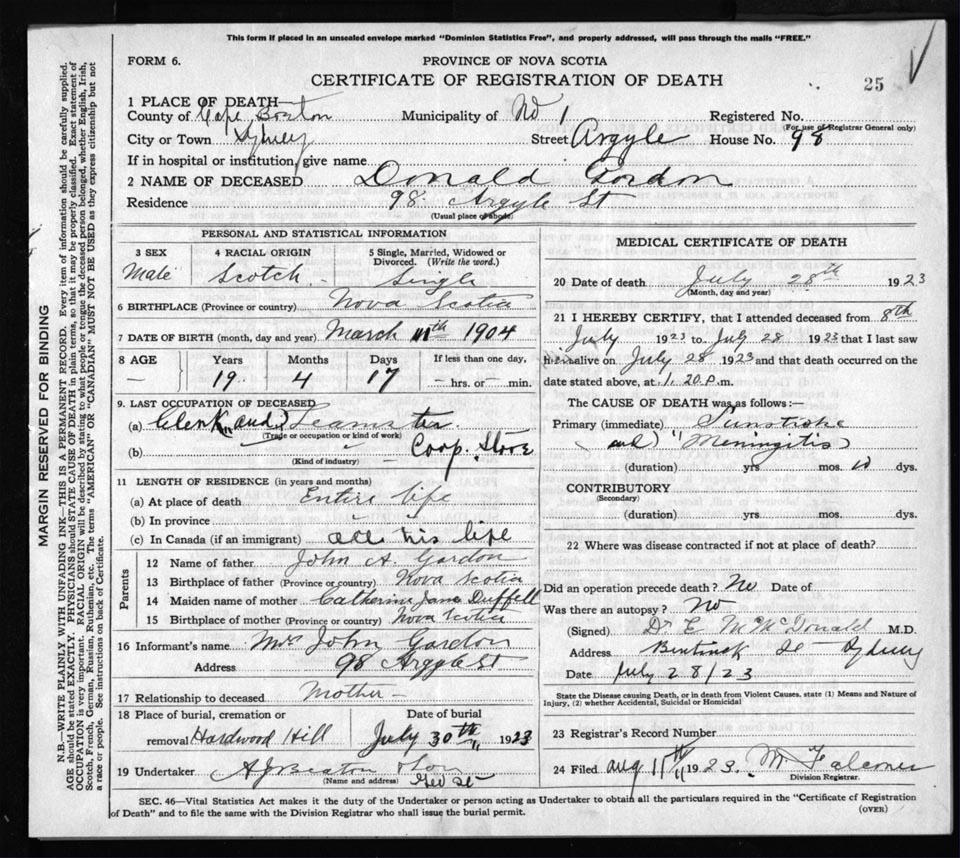 This form if placed in an unsealed envelope marked "Dominion Statistics Free", and properly addressed, will pass through the mails "FREE."
FORM 6.
PROVINCE OF NOVA SCOTIA
CERTIFICATE OF REGISTRATION OF DEATH
25
1 PLACE OF DEATH—
County of Cape Breton Municipality of No 1 Registered No.
(For use of Registrar General only)
City or Town Sydney Street Argyle House No. 98
If in hospital or institution, give name
2 NAME OF DECEASED Donald Gordon
Residence 98 Argyle St
(Usual place of abode)
PERSONAL AND STATISTICAL INFORMATION
3 SEX 4 RACIAL ORIGIN 5 Single, Married, Widowed or Divorced. (Write the word.)
Male Scotch Single
6 BIRTHPLACE (Province or country) Nova Scotia
7 DATE OF BIRTH (month, day and year) March 11th 1904
8 AGE Years Months Days If less than one day,
— 19 4 17 — hrs. or — min.
9. LAST OCCUPATION OF DECEASED
(a) Clerk and Teamster
(Trade or occupation or kind of work)
(b) Coop. Store
(Kind of industry)
11 LENGTH OF RESIDENCE (in years and months)
(a) At place of death Entire life
(b) In province " "
(c) In Canada (if an immigrant) all his life
Parents
12 Name of father John A. Gordon
13 Birthplace of father (Province or country) Nova Scotia
14 Maiden name of mother Catherine Jane Duffell
15 Birthplace of mother (Province or country) Nova Scotia
16 Informant's name Mrs John Gordon
Address 98 Argyle St
17 Relationship to deceased Mother —
18 Place of burial, cremation or removal Hardwood Hill
Date of burial July 30th 1923
19 Undertaker A J Beaton & Son
(Name and address) Geo St
MEDICAL CERTIFICATE OF DEATH
20 Date of death July 28th 1923
(Month, day and year)
21 I HEREBY CERTIFY, that I attended deceased from 8th
July 1923 to July 28 1923 that I last saw
him alive on July 28 1923 and that death occurred on the
date stated above, at 1.20 P.m.
The CAUSE OF DEATH was as follows:—
Primary (immediate) Sunstroke
and Meningitis
(duration) yrs mos. 10 dys.
CONTRIBUTORY
(Secondary)
(duration) yrs. mos. dys.
22 Where was disease contracted if not at place of death?
Did an operation precede death? No Date of
Was there an autopsy? No
(Signed) Dr E McDonald M.D.
Address Bentinck St Sydney
Date July 28/23
State the Disease causing Death, or in death from Violent Causes, state (1) Means and Nature of
Injury, (2) whether Accidental, Suicidal or Homicidal
23 Registrar's Record Number
24 Filed Aug 11th 1923. M Falconer
Division Registrar.
SEC. 46—Vital Statistics Act makes it the duty of the Undertaker or person acting as Undertaker to obtain all the particulars required in the "Certificate of Registration
of Death" and to file the same with the Division Registrar who shall issue the burial permit.
(OVER)
MARGIN RESERVED FOR BINDING
N.B.—WRITE PLAINLY WITH UNFADING INK—THIS IS A PERMANENT RECORD. Every item of information should be carefully supplied.
AGE should be stated EXACTLY. PHYSICIANS should STATE CAUSE OF DEATH in plain terms, so that it may be properly classified. Exact statement of
OCCUPATION is very important. RACIAL ORIGIN will be described by stating to what people or tongue the deceased person belonged, whether English, Irish,
Scotch, French, German, Russian, Ruthenian, etc. The terms "AMERICAN" or "CANADIAN" MUST NOT BE USED as they express citizenship but not
a race or people. See instructions on back of Certificate.